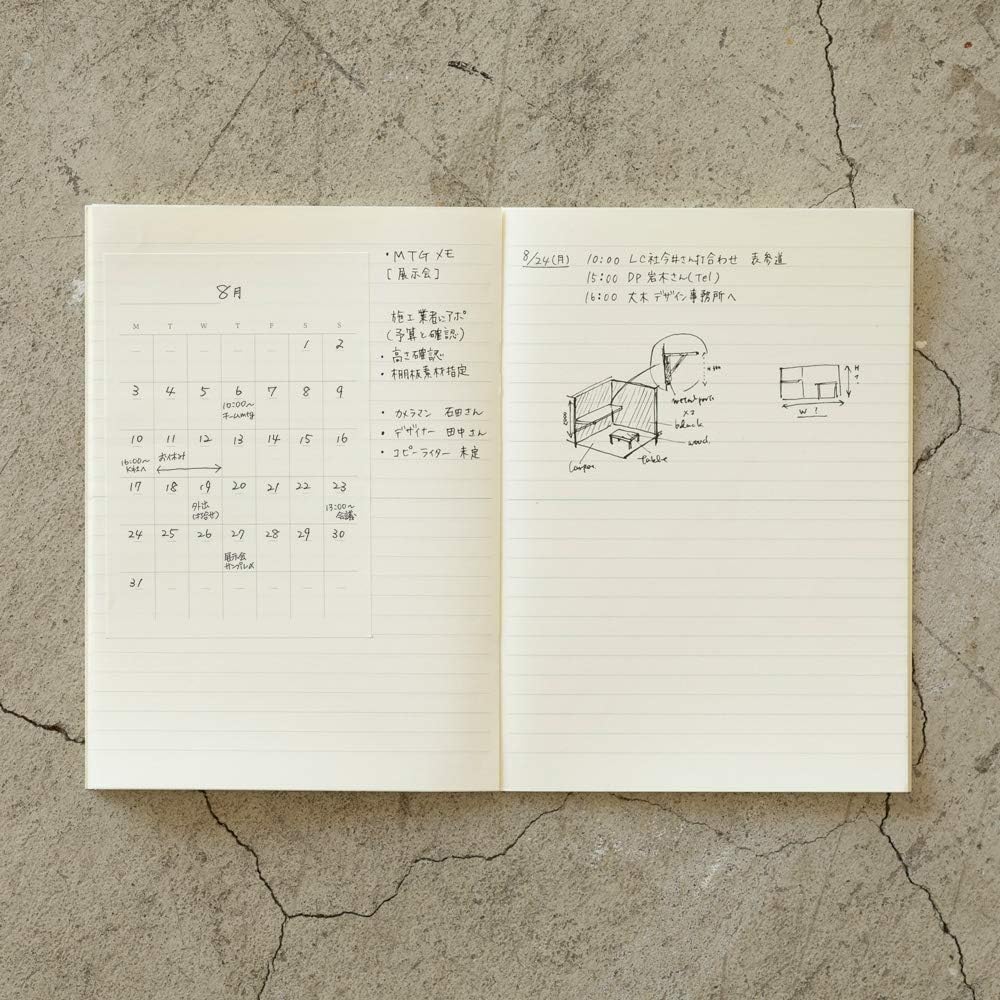 8月
M T W T F S S
1 2
3 4 5 6 7 8 9
10:00〜
チームmtg
10 11 12 13 14 15 16
16:00〜
K社へ
お休み
17 18 19 20 21 22 23
外出
(打合せ)
13:00〜
会議
24 25 26 27 28 29 30
展示会
サンプル〆
31
・MTGメモ
[展示会]
施工業者にアポ
(予算と確認)
・高さ確認
・棚板素材指定
・カメラマン 石田さん
・デザイナー 田中さん
・コピーライター 未定
8/24(月) 10:00 LC社今井さん打合わせ 表参道
15:00 DP岩木さん(Tel)
16:00 大木デザイン事務所へ
x2
black
wood
table
H
W !